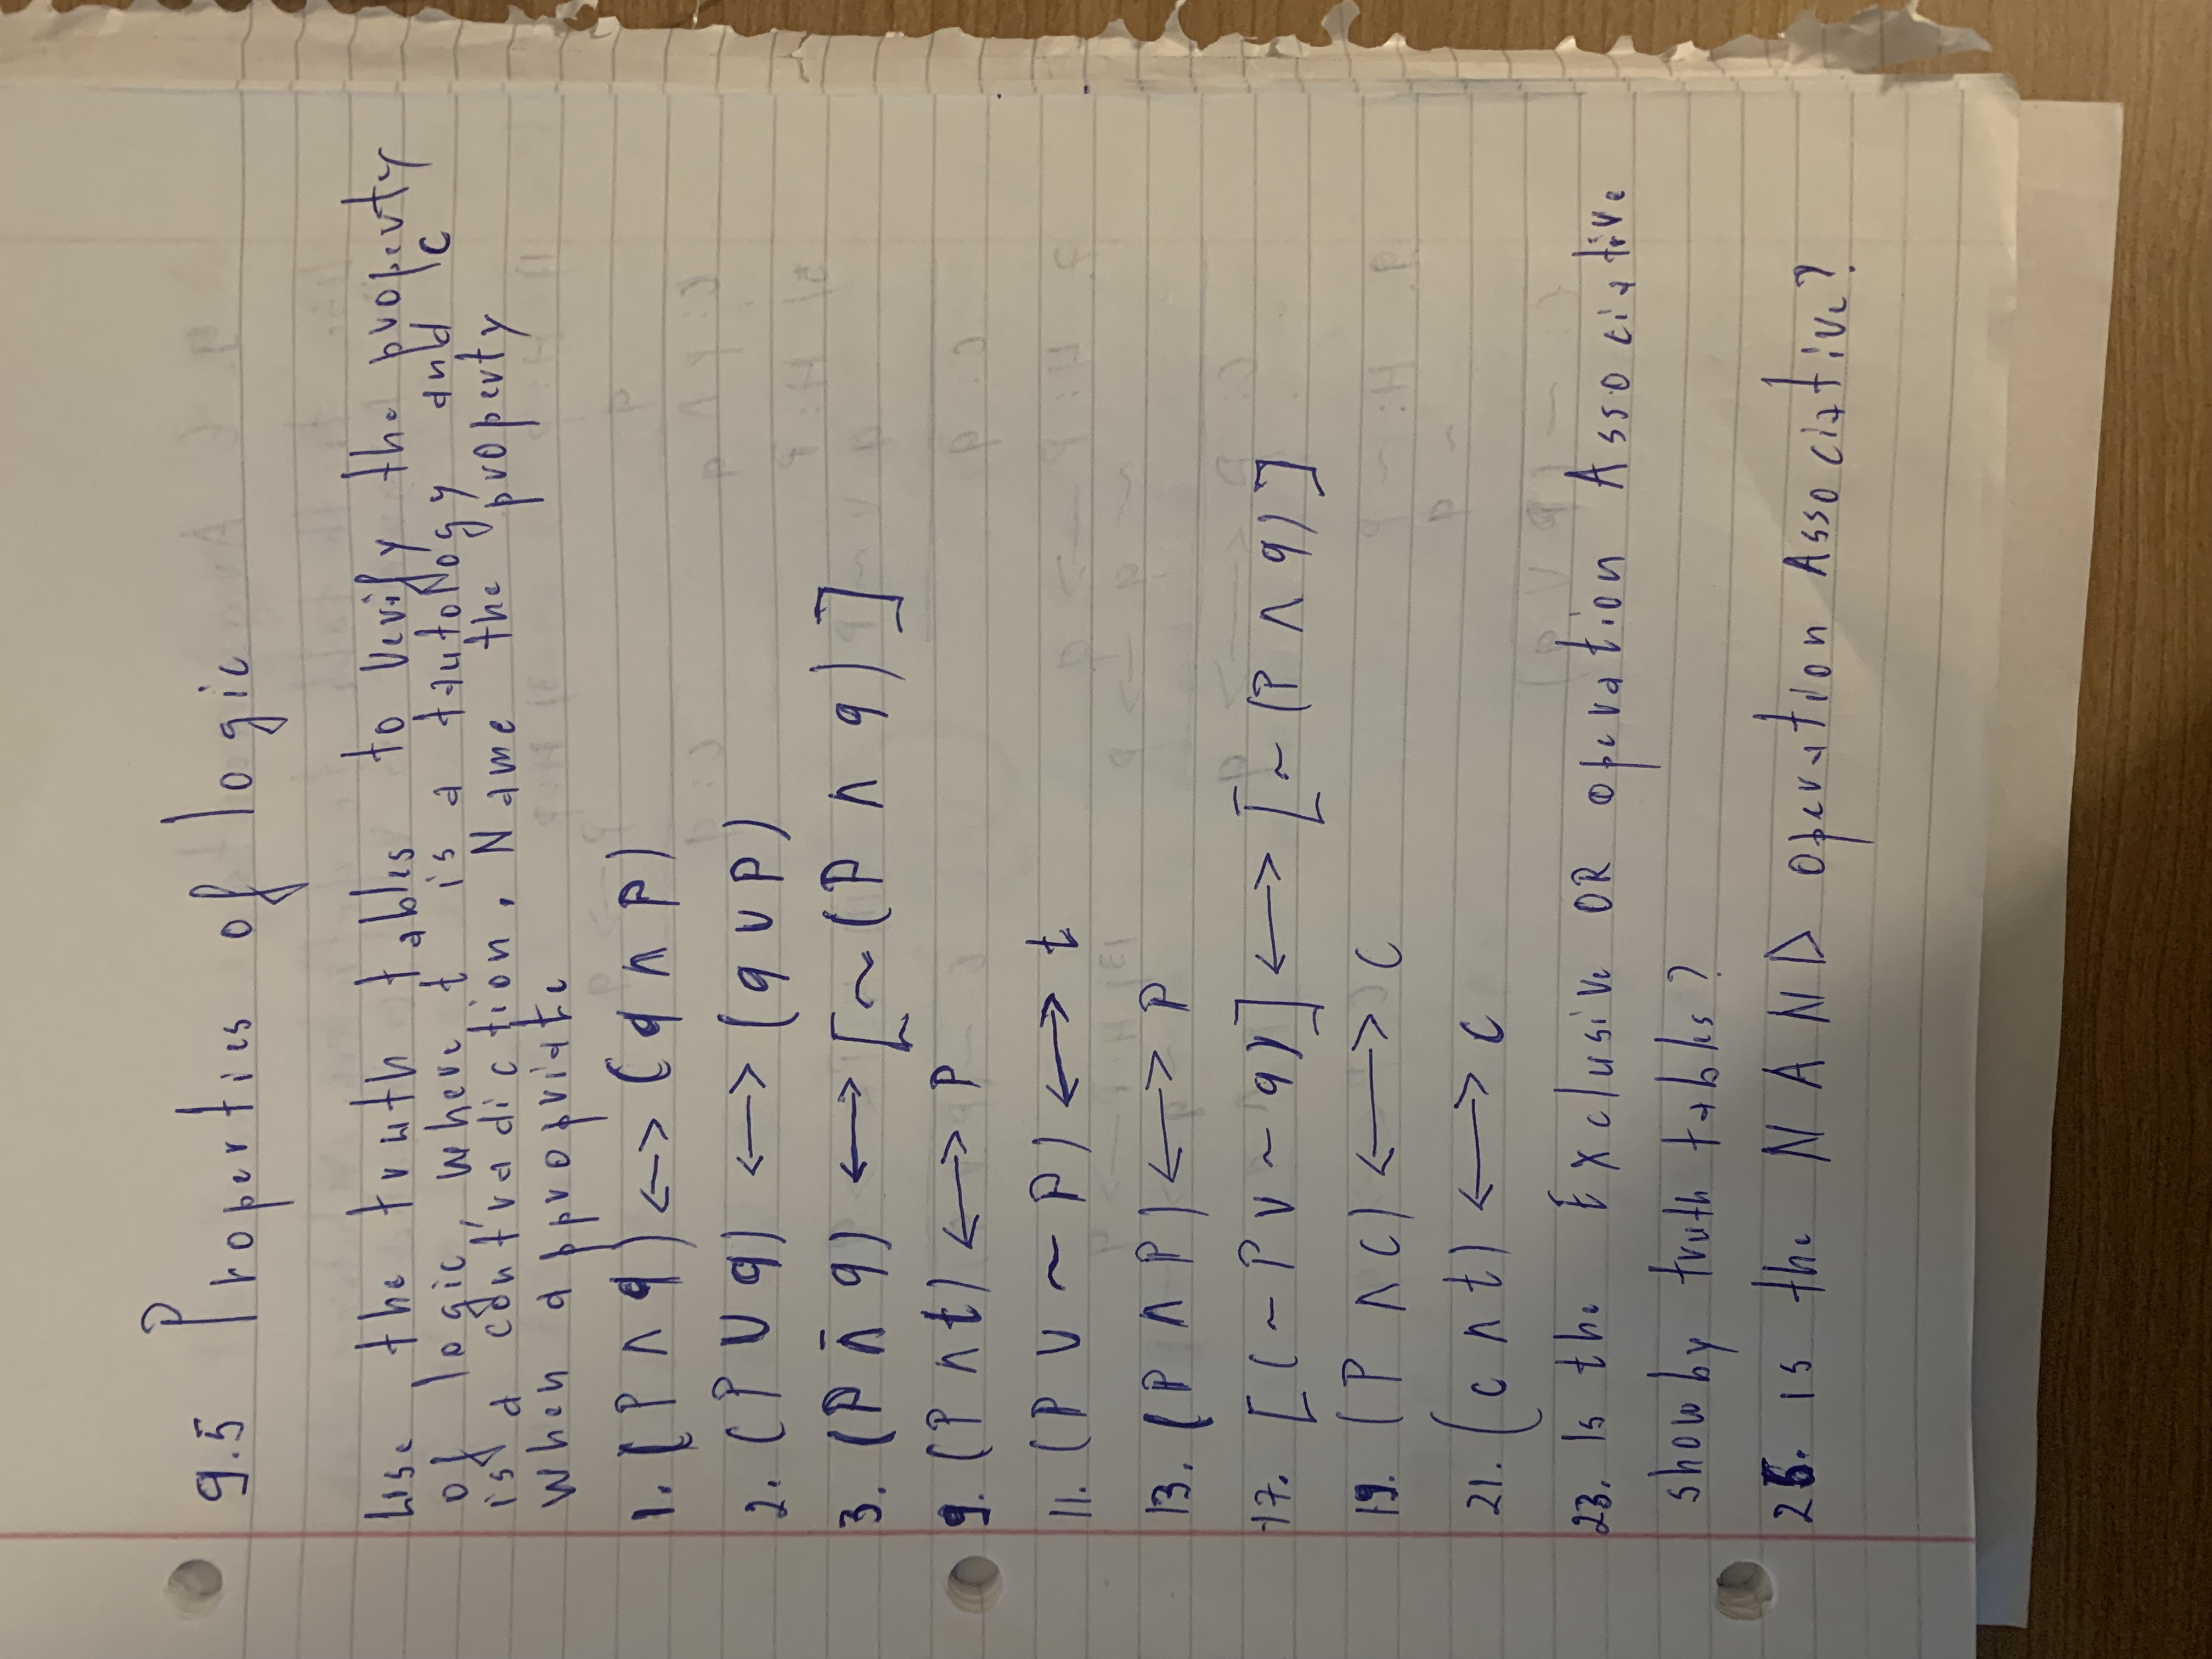 9.5 Properties of logic
Use the truth tables to verify the property
of logic, where t is a tautology and c
is a contradiction. Name the property
when appropriate
1. (P ∧ q) <-> (q ∧ P)
2. (P ∨ q) <-> (q ∨ P)
3. (P ⊼ q) <-> [~(P ∧ q)]
9. (P ∧ t) <-> P
11. (P ∨ ~P) <-> t
13. (P ∧ P) <-> P
17. [(~P ∨ ~q)] <-> [~(P ∧ q)]
19. (P ∧ c) <-> C
21. (c ∧ t) <-> C
23. Is the Exclusive OR operation Associative
show by truth tables?
is the NAND operation Associative?